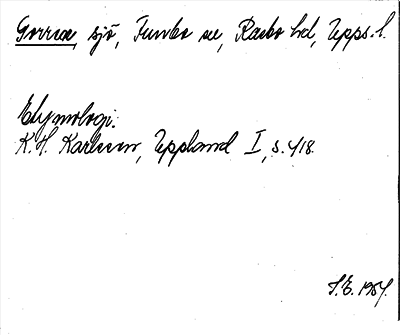 Gorran, sjö, Funbo sn, Rasbo hd, Upps. l.
Etymologi:
K. H. Karlsson, Uppland I, s. 418.
S.E. 1954.